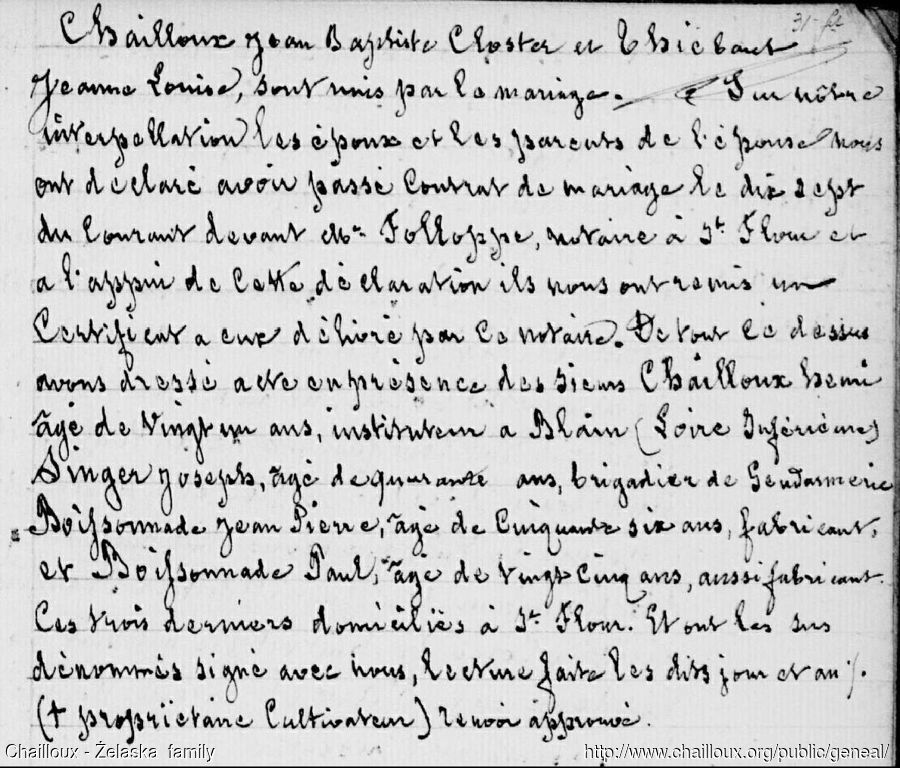 Chailloux Jean Baptiste Closter et Thiébaut
Jeanne Louise, sont unis par le mariage. Sur nôtre
interpellation les époux et les parents de l'épouse nous
ont déclaré avoir passé Contrat de mariage le dix sept
du Courant devant Me Folloppe, notaire à St Flour et
a l'appui de Cette déclaration ils nous ont remis un
Certificat a eux délivré par le notaire. De tout ce dessus
avons dressé acte en présence des sieurs Chailloux henri
âgé de Vingt un ans, instituteur a Blain (Loire Inférieure)
Singer Joseph, âgé de quarante ans, brigadier de Gendarmerie
Boissonnade Jean Pierre, âgé de Cinquante six ans, fabricant,
et Boissonnade Paul, âgé de vingt Cinq ans, aussi fabricant.
Ces trois derniers domiciliés à St Flour. Et ont les sus
dénommés signé avec nous, lecture faite les dits jour et an /.
(+ propriétaire Cultivateur) renvoi approuvé.
Chailloux - Želaska family
http://www.chailloux.org/public/geneal/